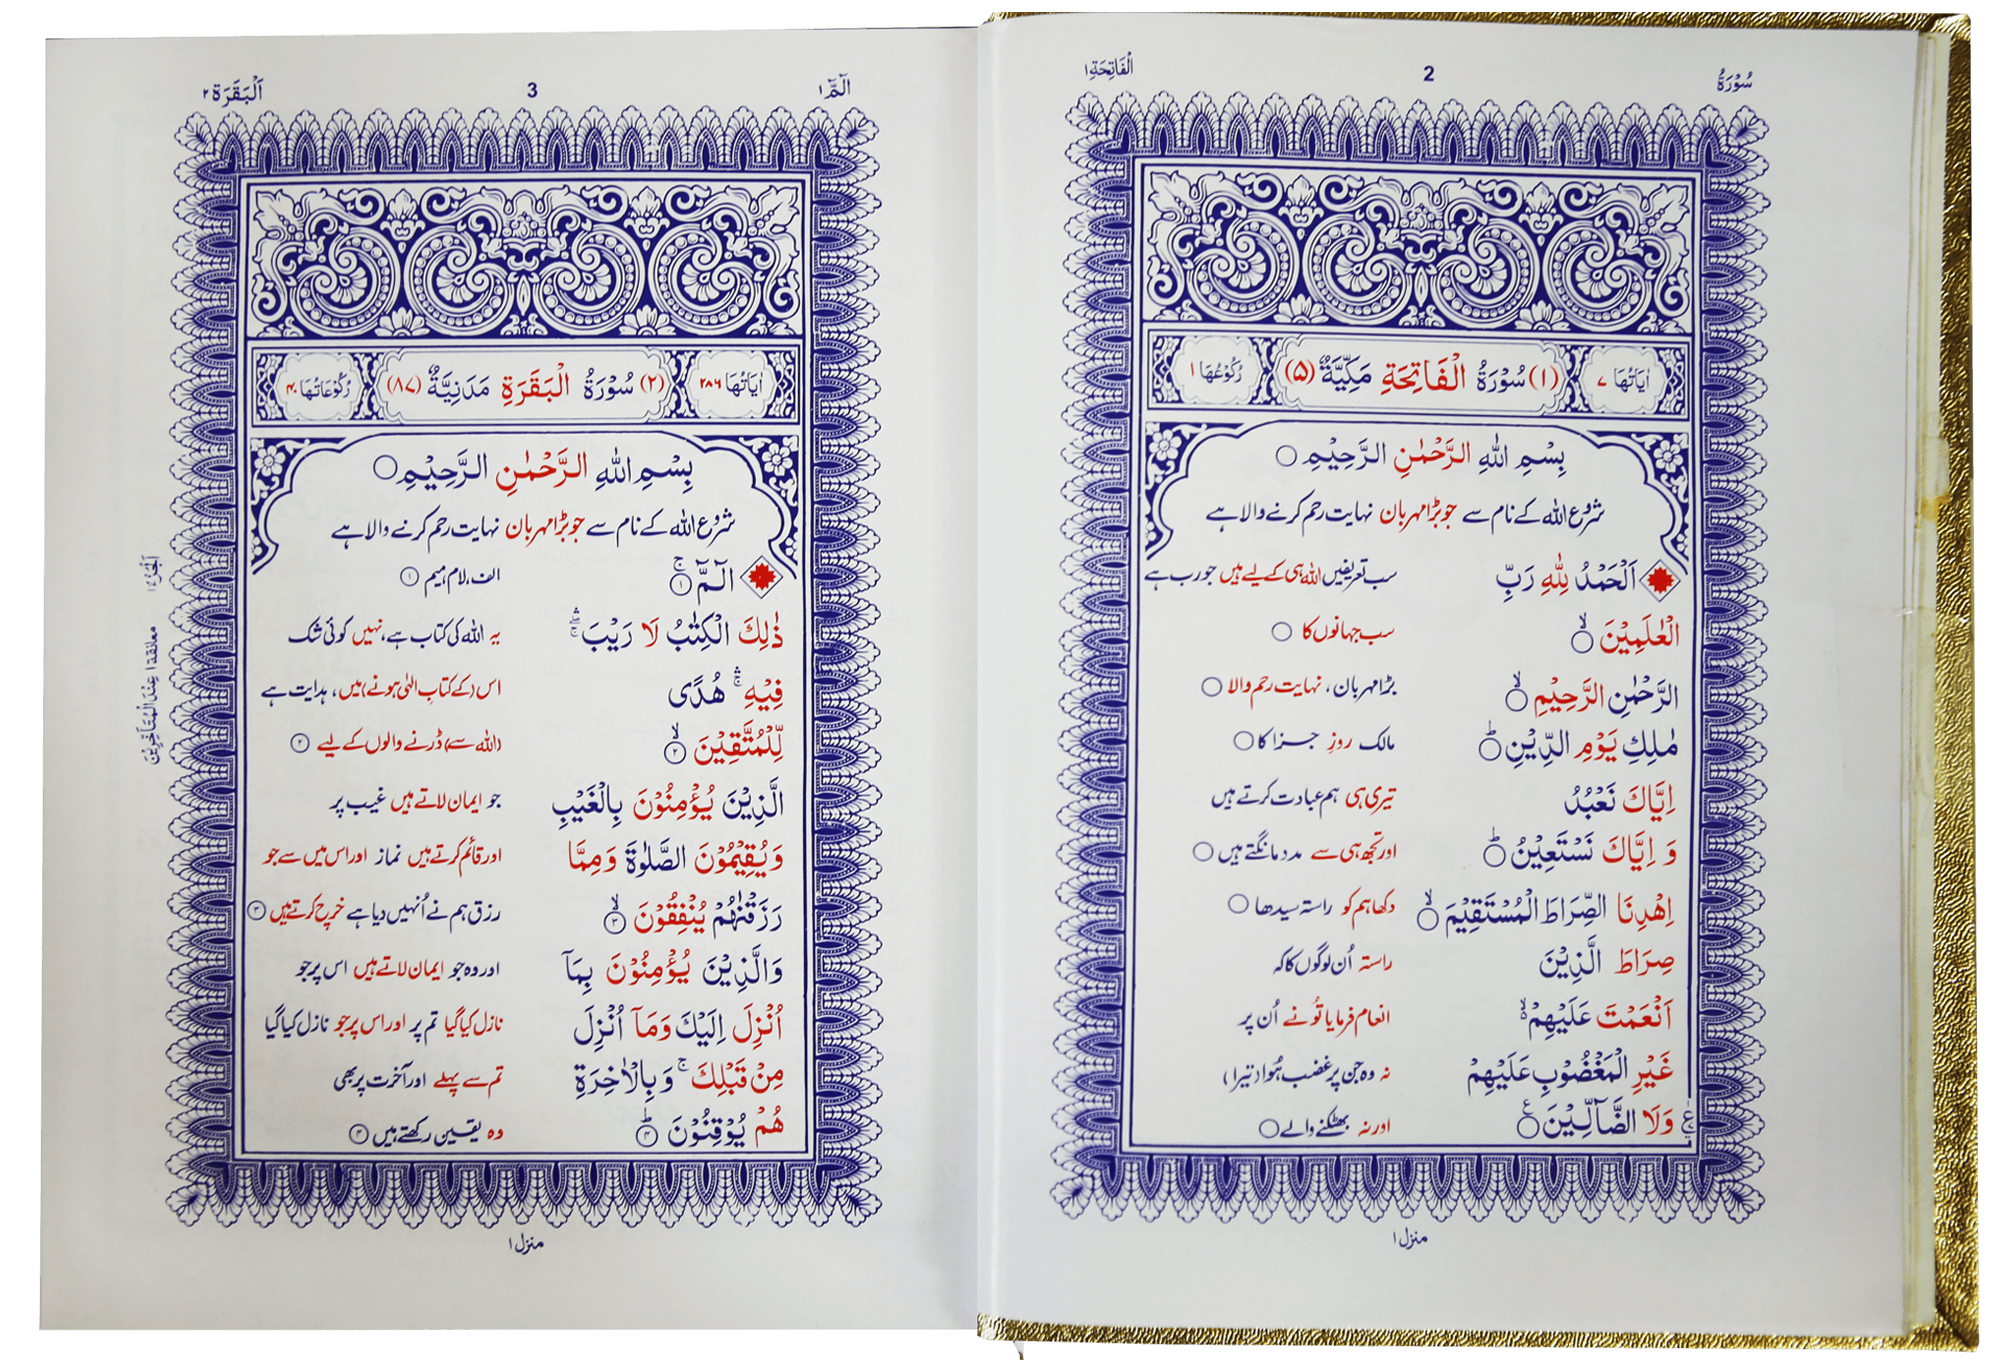 سُوْرَةُ 2 الْفَاتِحَةِ ١
اٰيَاتُهَا ٧ (١) سُوْرَةُ الْفَاتِحَةِ مَكِّيَّةٌ (٥) رُكُوْعُهَا ١
بِسْمِ اللّٰهِ الرَّحْمٰنِ الرَّحِيْمِ ○
شروع اللہ کے نام سے جو بڑا مہربان نہایت رحم کرنے والا ہے
اَلْحَمْدُ لِلّٰهِ رَبِّ سب تعریفیں اللہ ہی کے لیے ہیں جو رب ہے
الْعٰلَمِيْنَ ○ۙ سب جہانوں کا ○
الرَّحْمٰنِ الرَّحِيْمِ ○ۙ بڑا مہربان، نہایت رحم والا ○
مٰلِكِ يَوْمِ الدِّيْنِ ○ؕ مالک روزِ جزا کا ○
اِيَّاكَ نَعْبُدُ تیری ہی ہم عبادت کرتے ہیں
وَ اِيَّاكَ نَسْتَعِيْنُ ○ؕ اور تجھ ہی سے مدد مانگتے ہیں ○
اِهْدِنَا الصِّرَاطَ الْمُسْتَقِيْمَ ○ۙ دکھا ہم کو راستہ سیدھا ○
صِرَاطَ الَّذِيْنَ راستہ اُن لوگوں کا کہ
اَنْعَمْتَ عَلَيْهِمْ ۙ انعام فرمایا تُو نے اُن پر
غَيْرِ الْمَغْضُوْبِ عَلَيْهِمْ نہ وہ جن پر غضب ہُوا (تیرا)
وَلَا الضَّآلِّيْنَ ○ اور نہ بھٹکنے والے ○
منزل ١
الٓمّٓ ١ 3 اَلْبَقَرَة ٢
اٰيَاتُهَا ٢٨٦ (٢) سُوْرَةُ الْبَقَرَةِ مَدَنِيَّةٌ (٨٧) رُكُوْعَاتُهَا ٤٠
بِسْمِ اللّٰهِ الرَّحْمٰنِ الرَّحِيْمِ ○
شروع اللہ کے نام سے جو بڑا مہربان نہایت رحم کرنے والا ہے
الٓمّٓ ۚ ١ الف، لام، میم ١
ذٰلِكَ الْكِتٰبُ لَا رَيْبَ ۛۚ یہ اللہ کی کتاب ہے، نہیں کوئی شک
فِيْهِ ۛۚ هُدًى اس (کے کتابِ الٰہی ہونے) میں، ہدایت ہے
لِّلْمُتَّقِيْنَ ۙ ٢ (اللہ سے) ڈرنے والوں کے لیے ٢
الَّذِيْنَ يُؤْمِنُوْنَ بِالْغَيْبِ جو ایمان لاتے ہیں غیب پر
وَيُقِيْمُوْنَ الصَّلٰوةَ وَمِمَّا اور قائم کرتے ہیں نماز اور اس میں سے جو
رَزَقْنٰهُمْ يُنْفِقُوْنَ ۙ ٣ رزق ہم نے اُنہیں دیا ہے خرچ کرتے ہیں ٣
وَالَّذِيْنَ يُؤْمِنُوْنَ بِمَآ اور وہ جو ایمان لاتے ہیں اس پر جو
اُنْزِلَ اِلَيْكَ وَمَآ اُنْزِلَ نازل کیا گیا تم پر اور اس پر جو نازل کیا گیا
مِنْ قَبْلِكَ ۚ وَبِالْاٰخِرَةِ تم سے پہلے اور آخرت پر بھی
هُمْ يُوْقِنُوْنَ ؕ ٤ وہ یقین رکھتے ہیں ٤
اَلْجُزْءُ ١
معانقة ١ عِنْدَ الْمُتَاَخِّرِيْنَ
منزل ١